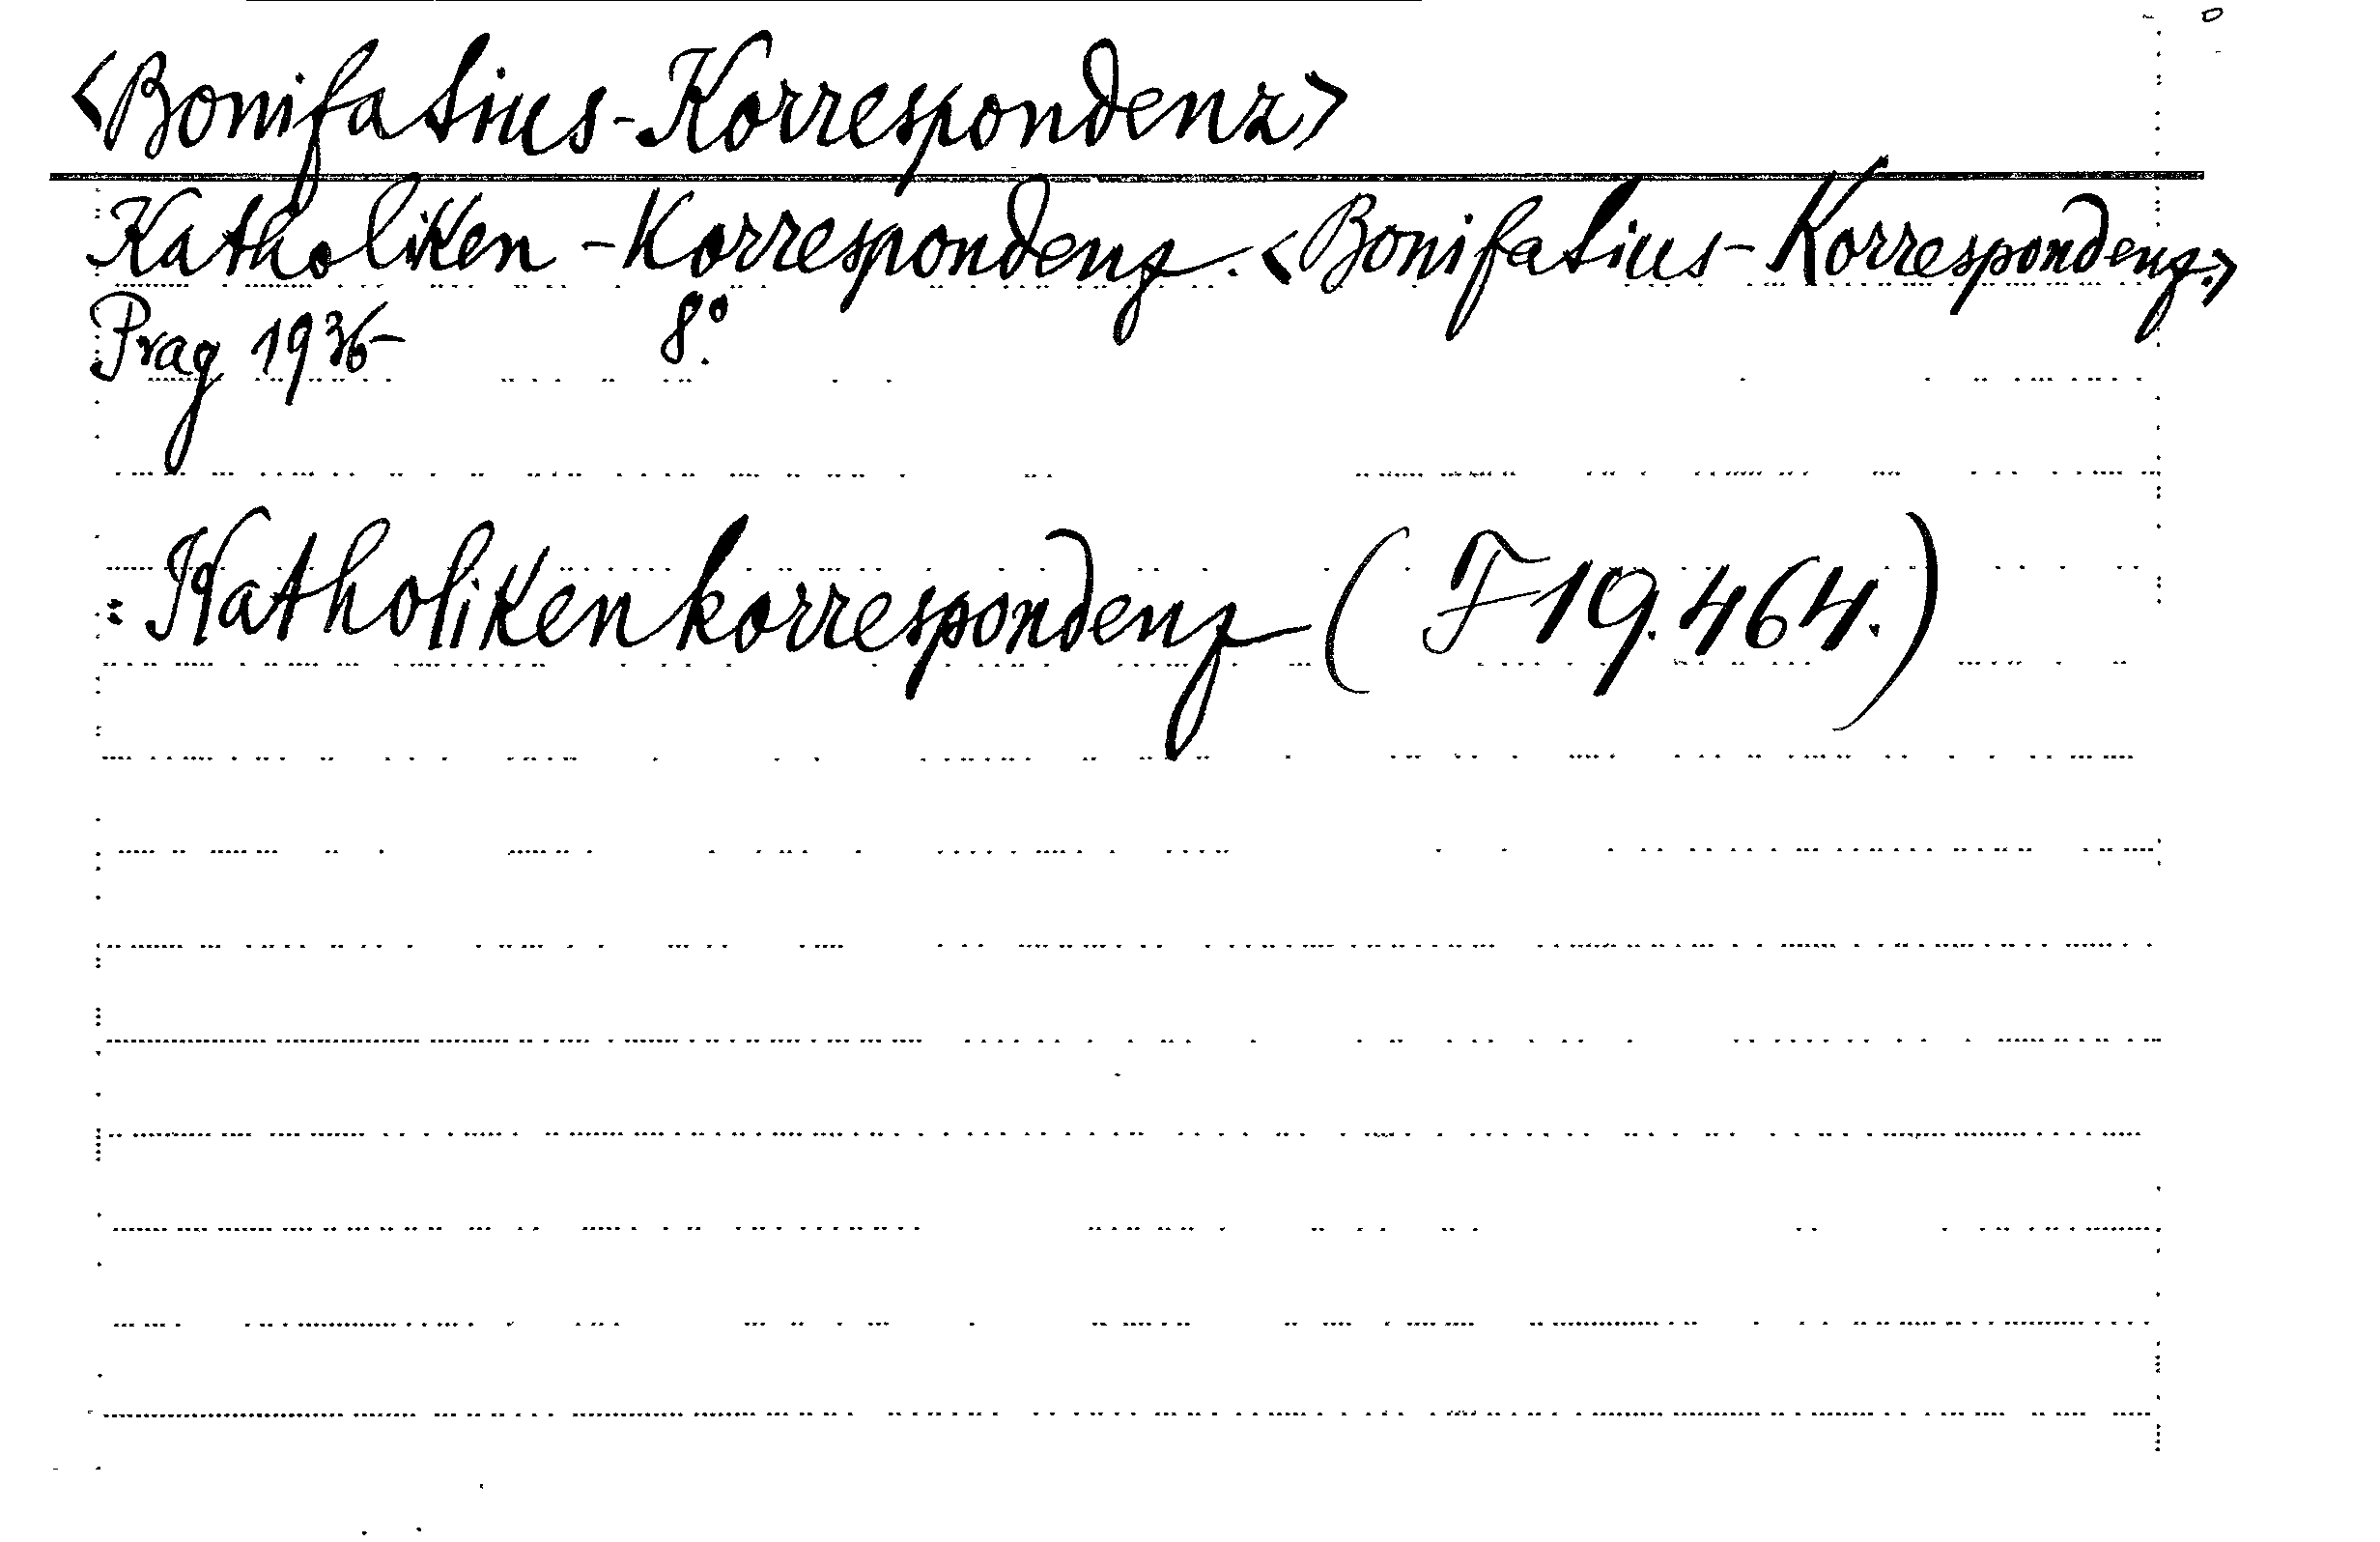 <Bonifatius-Korrespondenz>
Katholiken-Korrespondenz. <Bonifatius-Korrespondenz.>
Prag 1936- 8°.
: Katholikenkorrespondenz (F 19.464.)